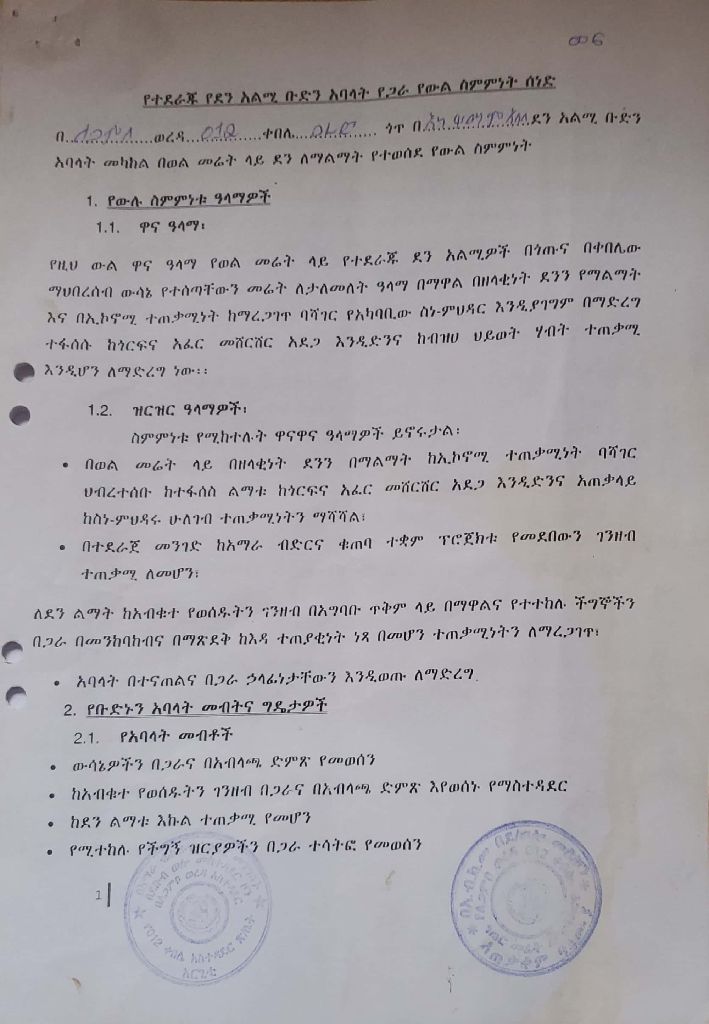 የተደራጁ የደን አልሚ ቡድን አባላት የጋራ የውል ስምምነት ሰነድ
በ ለጋምቦ ወረዳ 012 ቀበሌ ጎጥ በ ደን አልሚ ቡድን
አባላት መካከል በወል መሬት ላይ ደን ለማልማት የተወሰደ የውል ስምምነት
1. የውሉ ስምምነቱ ዓላማዎች
1.1. ዋና ዓላማ፡
የዚህ ውል ዋና ዓላማ የወል መሬት ላይ የተደራጁ ደን አልሚዎች በጎጡና በቀበሌው
ማህበረሰብ ውሳኔ የተሰጣቸውን መሬት ለታለመለት ዓላማ በማዋል በዘላቂነት ደንን የማልማት
እና በኢኮኖሚ ተጠቃሚነት ከማረጋገጥ ባሻገር የአካባቢው ስነ-ምህዳር እንዲያገግም በማድረግ
ተፋሰሱ ከጎርፍና አፈር መሸርሸር አደጋ እንዲድንና ከብዝሀ ህይወት ሃብት ተጠቃሚ
እንዲሆን ለማድረግ ነው፡፡
1.2. ዝርዝር ዓላማዎች፡
ስምምነቱ የሚከተሉት ዋናዋና ዓላማዎች ይኖሩታል፡
• በወል መሬት ላይ በዘላቂነት ደንን በማልማት ከኢኮኖሚ ተጠቃሚነት ባሻገር
ህብረተሰቡ ከተፋሰስ ልማቱ ከጎርፍና አፈር መሸርሸር አደጋ እንዲድንና አጠቃላይ
ከስነ-ምህዳሩ ሁለገብ ተጠቃሚነትን ማሻሻል፤
• በተደራጀ መንገድ ከአማራ ብድርና ቁጠባ ተቋም ፕሮጀክቱ የመደበውን ገንዘብ
ተጠቃሚ ለመሆን፤
ለደን ልማት ከአብቁተ የወሰዱትን ገንዘብ በአግባቡ ጥቅም ላይ በማዋልና የተተከሉ ችግኞችን
በጋራ በመንከባከብና በማጽደቅ ከእዳ ተጠያቂነት ነጻ በመሆን ተጠቃሚነትን ለማረጋገጥ፤
• አባላት በተናጠልና በጋራ ኃላፊነታቸውን እንዲወጡ ለማድረግ.
2. የቡድኑን አባላት መብትና ግዴታዎች
2.1. የአባላት መብቶች
• ውሳኔዎችን በጋራና በአብላጫ ድምጽ የመወሰን
• ከአብቁተ የወሰዱትን ገንዘብ በጋራና በአብላጫ ድምጽ እየወሰኑ የማስተዳደር
• ከደን ልማቱ እኩል ተጠቃሚ የመሆን
• የሚተከሉ የችግኝ ዝርያዎችን በጋራ ተሳትፎ የመወሰን
1|